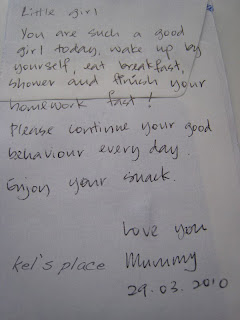 Little girl
You are such a good
girl today, wake up by
yourself, eat breakfast,
shower and finish your
homework fast!
Please continue your good
behaviour every day.
Enjoy your snack.
Love you
kel's place Mummy
29.03.2010